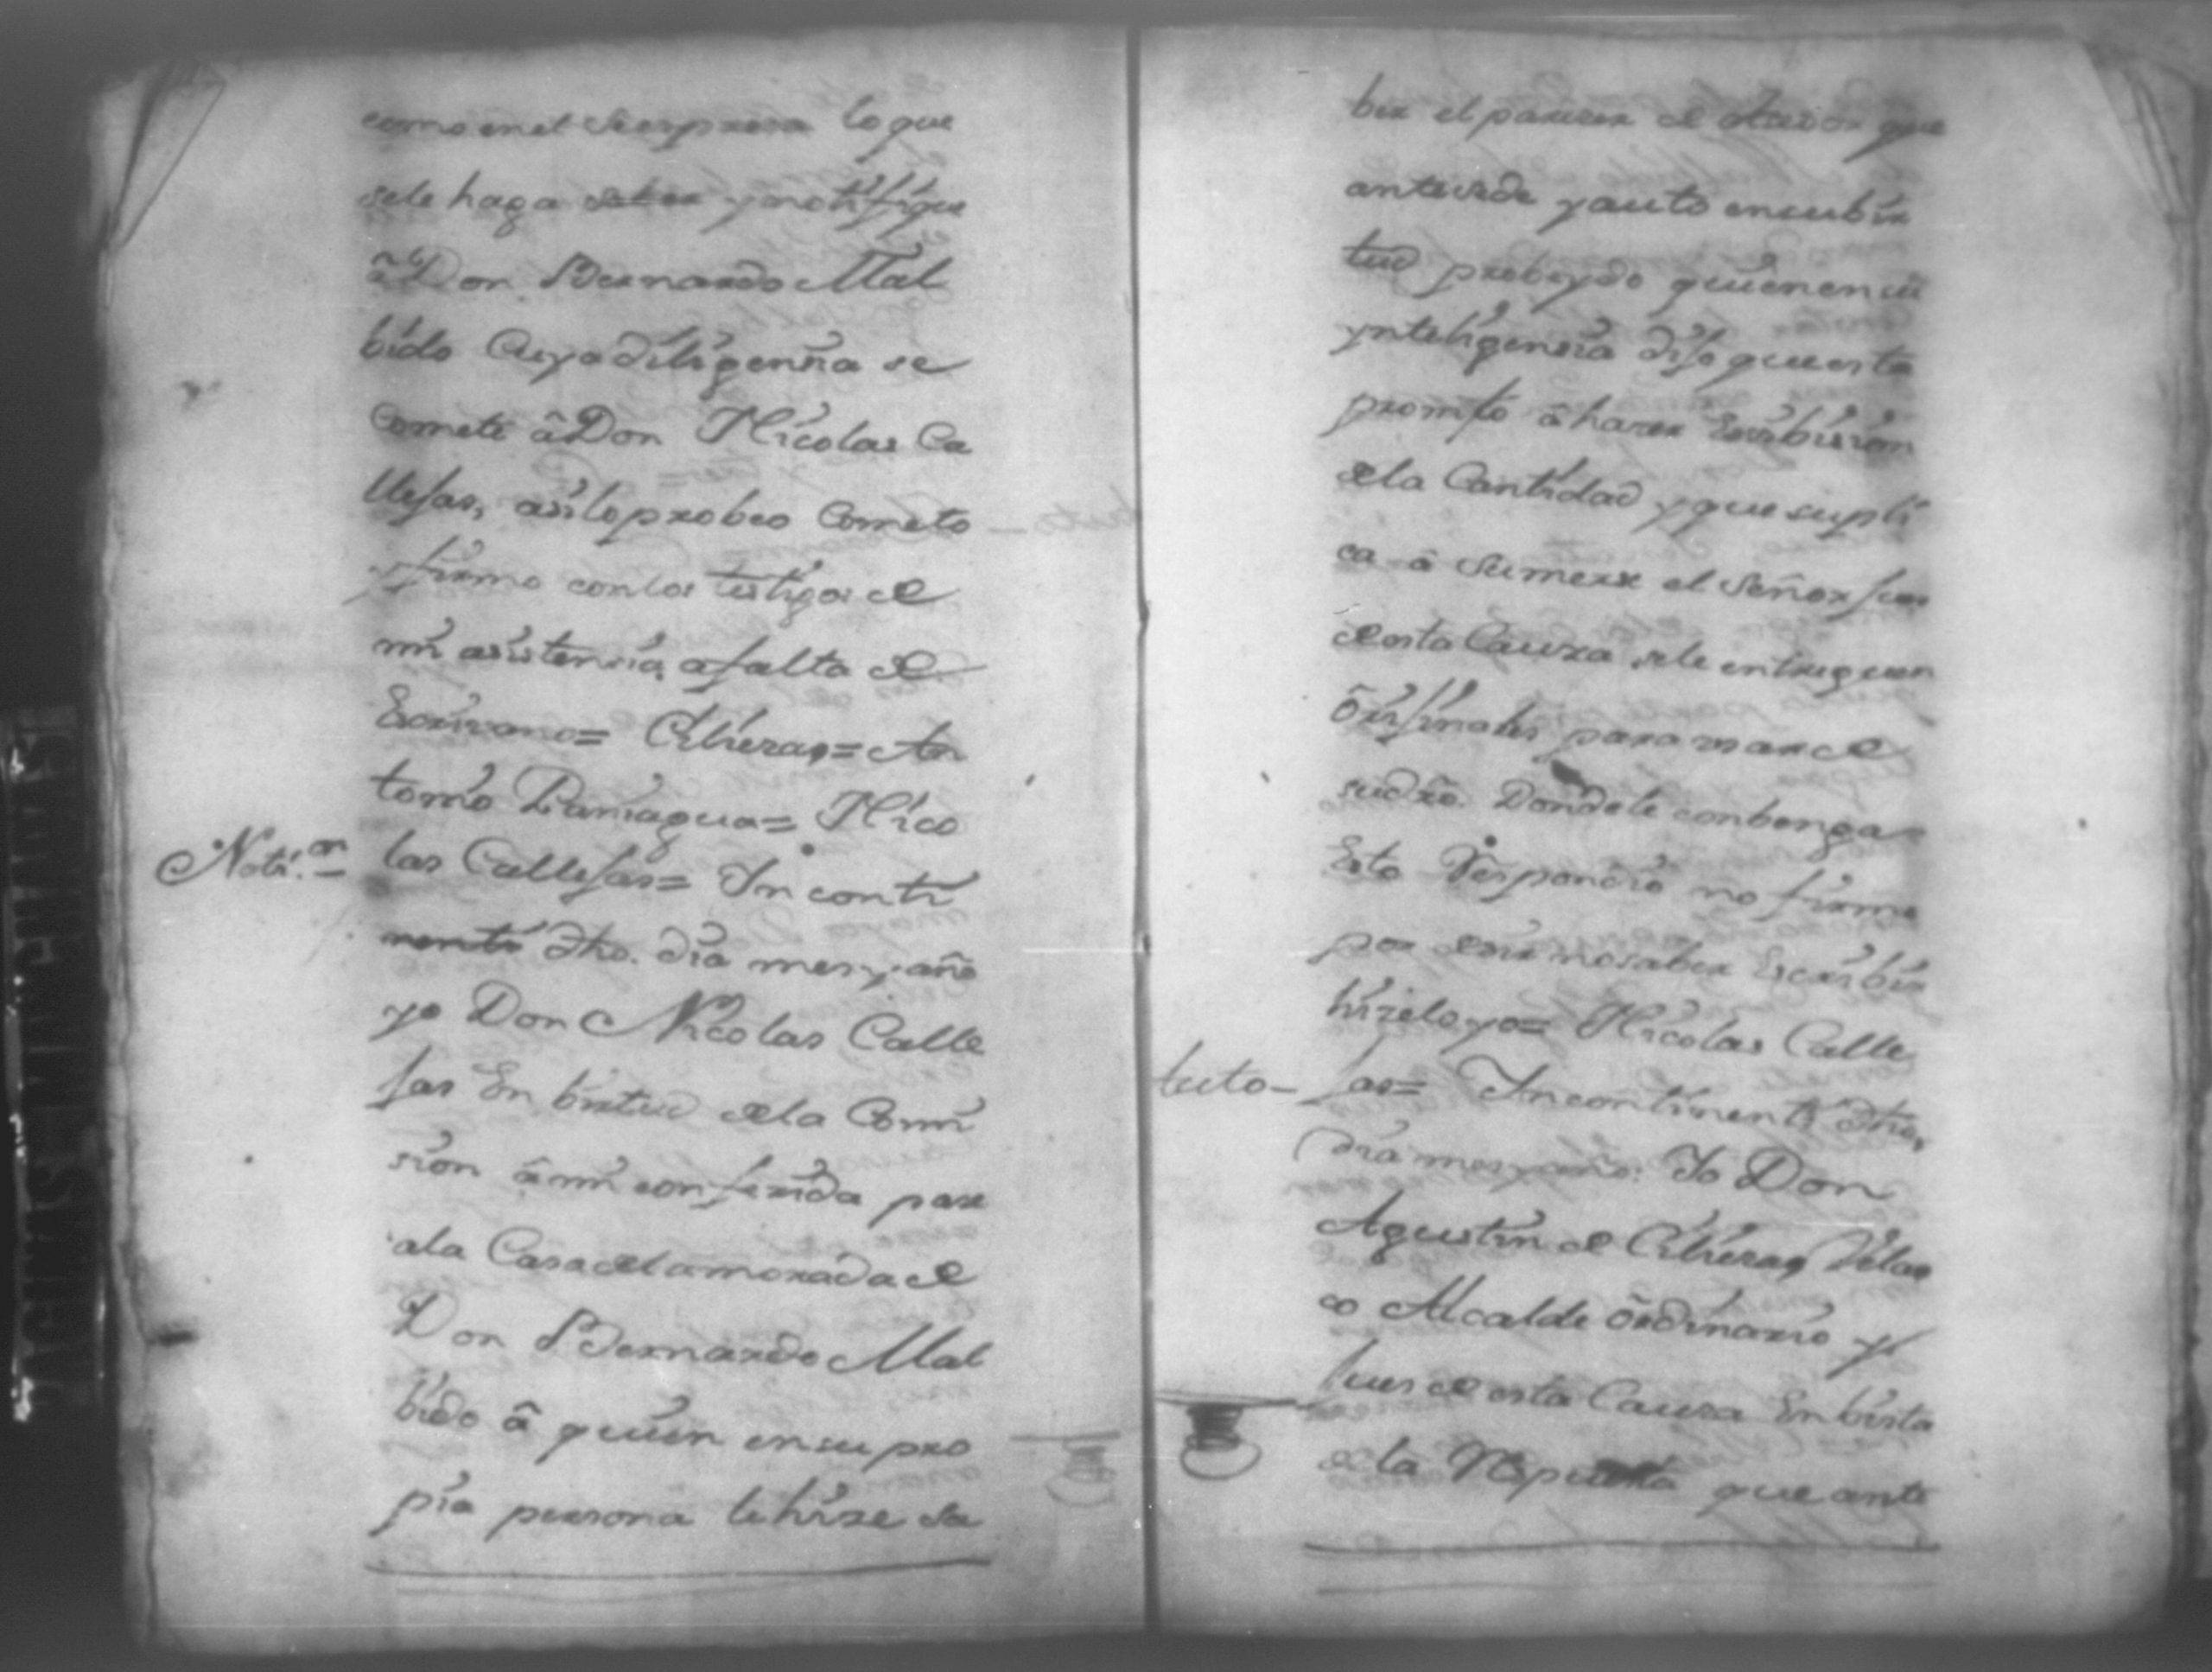 como en el se espresa lo que
sele haga saber y notifique
â Don Bernardo Mal
bido Cuya diligensia se
comete â Don Nicolas Ca
llejas, asi lo probeo Cometo
y firmo con los testigos de
mi asistensia, a falta de
Escrivano = Cilieza, = An
tonio Paniagua = Nico
Noti.on
las Callejas = In conti
nenti dho. dia mes y año
yo Don Nicolas Calle
jas En birtud dela Comi
sion â mi conferida pase
ala Casa dela morada de
Don Bernardo Mal
bido â quien en su pro
pia persona le hize sa
ber el pareser de Asesor que
antesede y auto en su bir
tud probeydo quien en su
ynteligensia dijo que esta
prompto â haser Exsibision
dela Cantidad y que supli
ca â su merx el Señor Jues
de esta Cauza, sele entreguen
ôrijinales para usar de
su dro. Donde le conbenga
Esto Respondio no firmo
por desir no saber Escribir
hizelo yo = Nicolas Calle
Auto -
jas = Incontinenti dho,
dia mes y año: Yo Don
Agustin de Cilieza, Velas
co Alcalde ôrdinario y
Jues de esta Cauza En bista
dela Repuesta que ante